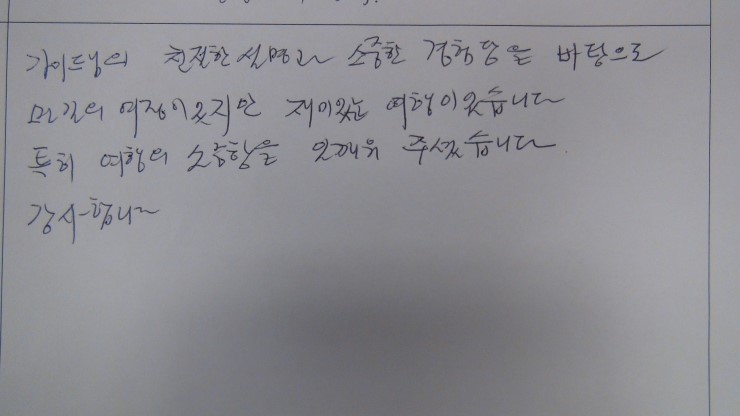 가이드님의 친절한 설명과 소중한 경험담을 바탕으로
먼길의 여정이였지만 재미있는 여행이었습니다
특히 여행의 소중함을 일깨워 주셨습니다
감사합니다